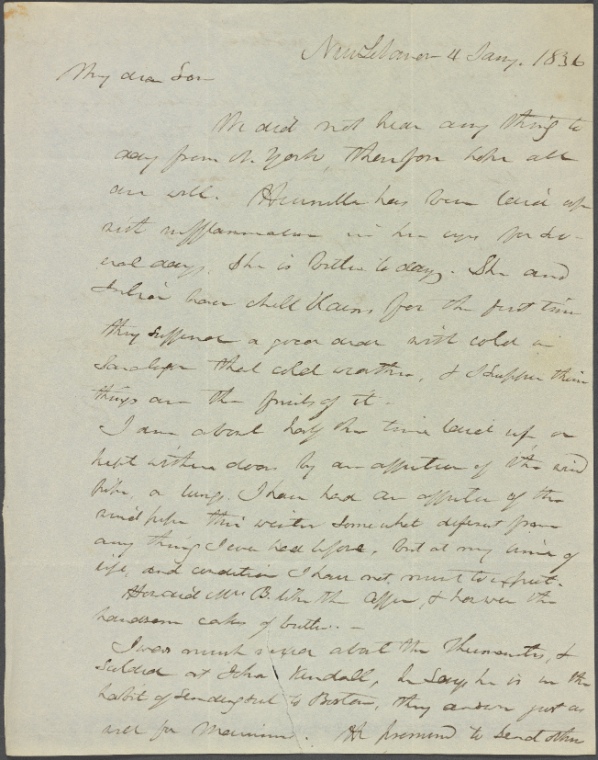 New Lebanon 4 Jany. 1836
My dear Son
We did not hear any thing to
day from N. York, therefore hope all
are well. has been laid up
with inflammation in her eyes for se-
veral days, She is better to day. She and
Julia have chill blains for the first time
they suffered a good deal with cold in
that cold weather, & I suppose these
things are the fruits of it -
I am about half the time laid up or
kept within doors by an affection of the wind
pipe, or lungs. I have had an affection of the
wind pipe this winter somewhat different from
any thing I ever had before, but at my time of
life, and condition I have not much to expect.
Mrs B. with the & the
handsome cakes of butter. -
I was much about the Thermometers, &
at John Kendall, he says he is in the
habit of sending to Boston, they answer just as
well for . He promised to send other